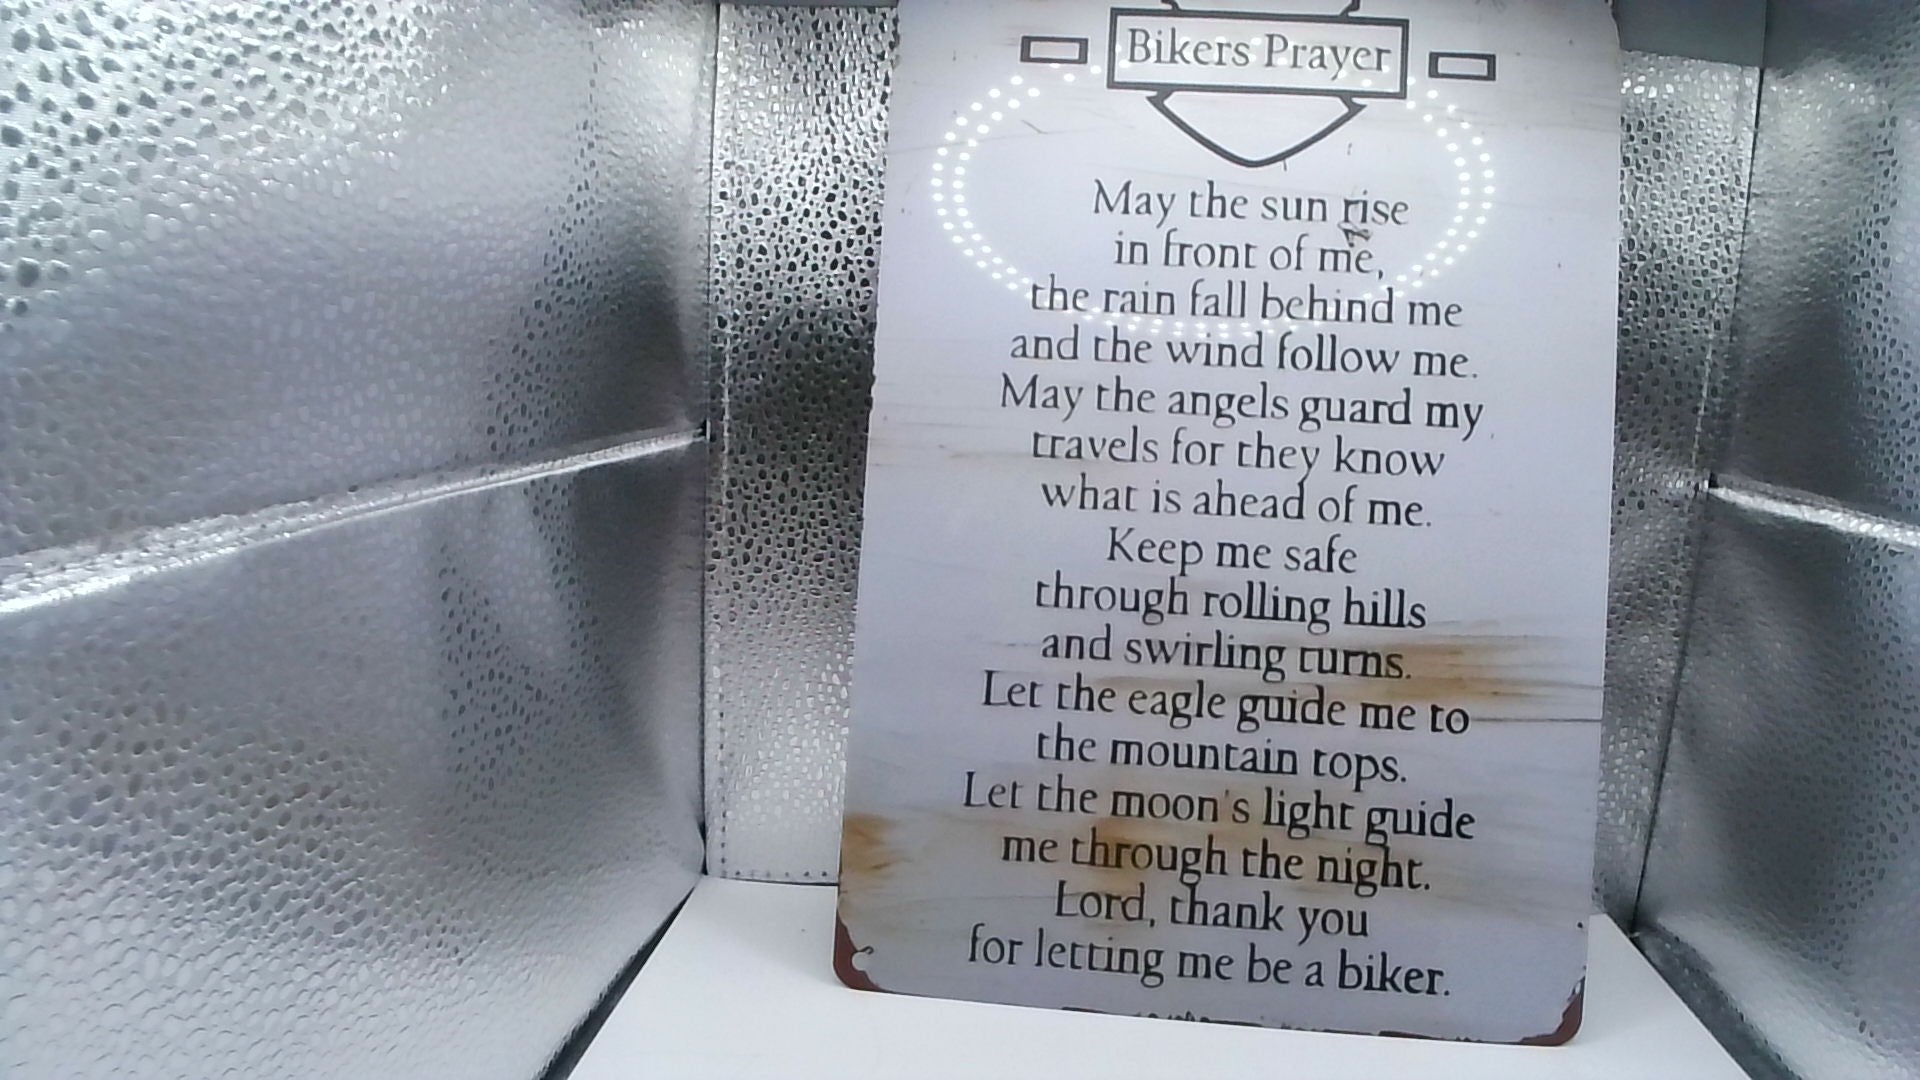 Bikers Prayer
May the sun rise
in front of me,
the rain fall behind me
and the wind follow me.
May the angels guard my
travels for they know
what is ahead of me.
Keep me safe
through rolling hills
and swirling turns.
Let the eagle guide me to
the mountain tops.
Let the moon's light guide
me through the night.
Lord, thank you
for letting me be a biker.